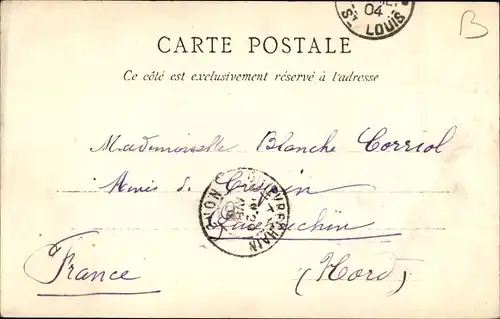 04
St LOUIS
B
CARTE POSTALE
Ce côté est exclusivement réservé à l'adresse
Mademoiselle Blanche Corriol
Mines de Crespin
QUIÉVRECHAIN
France
(Nord)